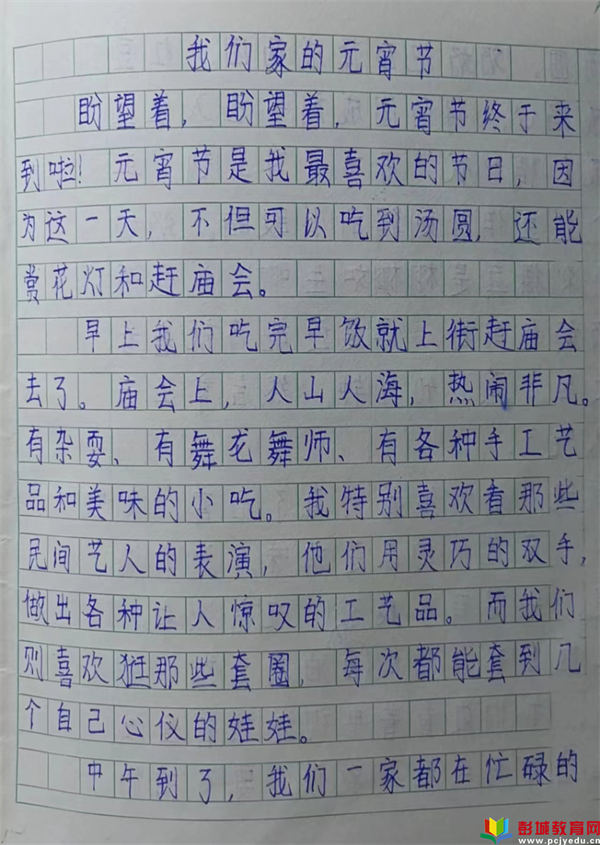 我们家的元宵节
盼望着，盼望着，元宵节终于来
到啦！元宵节是我最喜欢的节日，因
为这一天，不但可以吃到汤圆，还能
赏花灯和赶庙会。
早上我们吃完早饭就上街赶庙会
去了。庙会上，人山人海，热闹非凡。
有杂耍、有舞龙舞师、有各种手工艺
品和美味的小吃。我特别喜欢看那些
民间艺人的表演，他们用灵巧的双手，
做出各种让人惊叹的工艺品。而我们
则喜欢逛那些套圈，每次都能套到几
个自己心仪的娃娃。
中午到了，我们一家都在忙碌的
彭城教育网
www.pcjyedu.cn